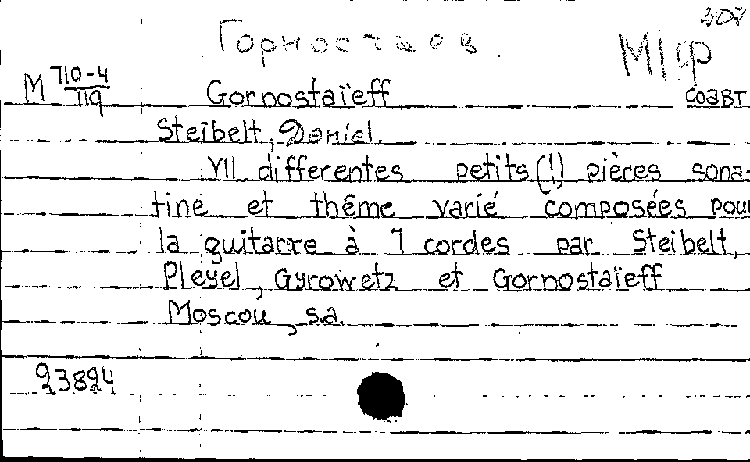 307
Горностаев.
М I ф
М 710-4/719
Gornostaïeff
соавт
Steibelt, Daniel.
VII differentes petits (!) pièces sona-
tine et thême varié composées pour
la guitarre à 7 cordes par Steibelt,
Pleyel, Gyrowetz et Gornostaïeff
Moscou, s.a.
23824